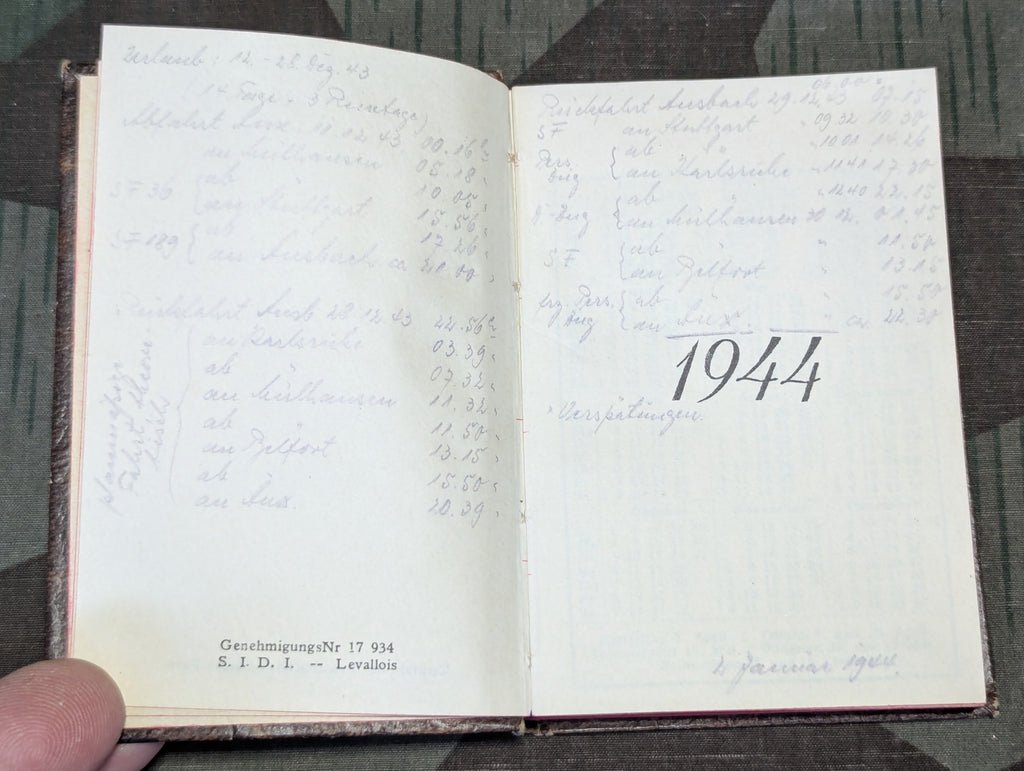 Urlaub: 12. - 28. Dez. 43
(14 Tage + 3 Reisetage)
Abfahrt Aux. 11.12.43 00.16
an Mülhausen 05.18 "
ab " 10.05 "
SF 36 an Stuttgart 15.56 "
ab " 17.26 "
SF 189 an Ansbach ca 21.00 "
Rückfahrt Ansb. 28.12.43 22.56
an Karlsruhe 03.39 "
ab 07.32 "
an Mülhausen 11.32 "
ab 11.50 "
an Belfort 13.15 "
ab 15.50 "
an Aux. 20.39 "
planmäßige
Fahrt theore-
tisch
GenehmigungsNr 17 934
S. I. D. I. -- Levallois
06.00 "
Rückfahrt Ansbach 29.12.43 07.15
SF an Stuttgart " 09.32 10.30
ab " " 10.01 14.26
Pers. Zug an Karlsruhe " 11.41 17.30
ab " " 12.40 22.15
D-Zug an Mülhausen 30.12. 01.45
ab " " 11.50
SF an Belfort " 13.15
ab " 15.50
frz. Pers. Zug an Aux. " ca. 22.30
1944
" Verspätungen.
2. Januar 1944.